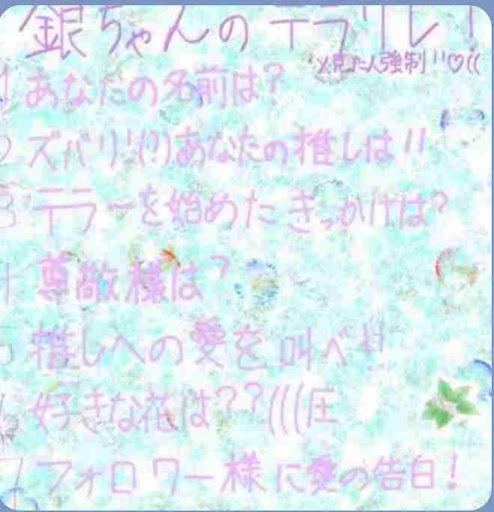 銀ちゃんのテラリレ!
※見た人強制!!♡((
1 あなたの名前は?
2 ズバリ!(?)あなたの推しは!!
3 テラーを始めたきっかけは?
4 尊敬様は?
5 推しへの愛を叫べ!!
6 好きな花は??(((圧
7 フォロワー様に愛の告白!